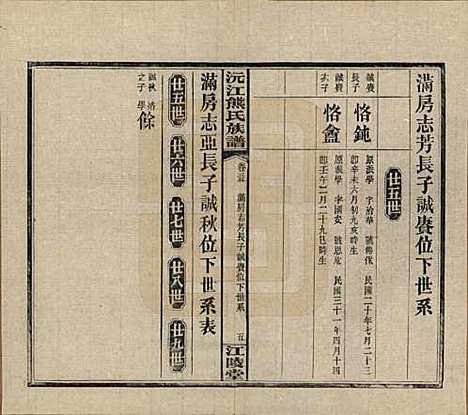 滿房志芳長子誠賡位下世系
廿五世
誠賡長子
恪鈍
原派學 字治華 號錫保 民國二十年七月二十三
即辛未六月初九亥時生
誠賡次子
恪盦
原派學 字國安 號恩定 民國三十一年四月十四
即壬午二月二十九巳時生
沅江熊氏族譜
卷三五
滿房志芳長子誠賡位下世系
五
江陵堂
滿房志亞長子誠秋位下世系表
廿五世
廿六世
廿七世
廿八世
廿九世
誠秋之子
清學
馀